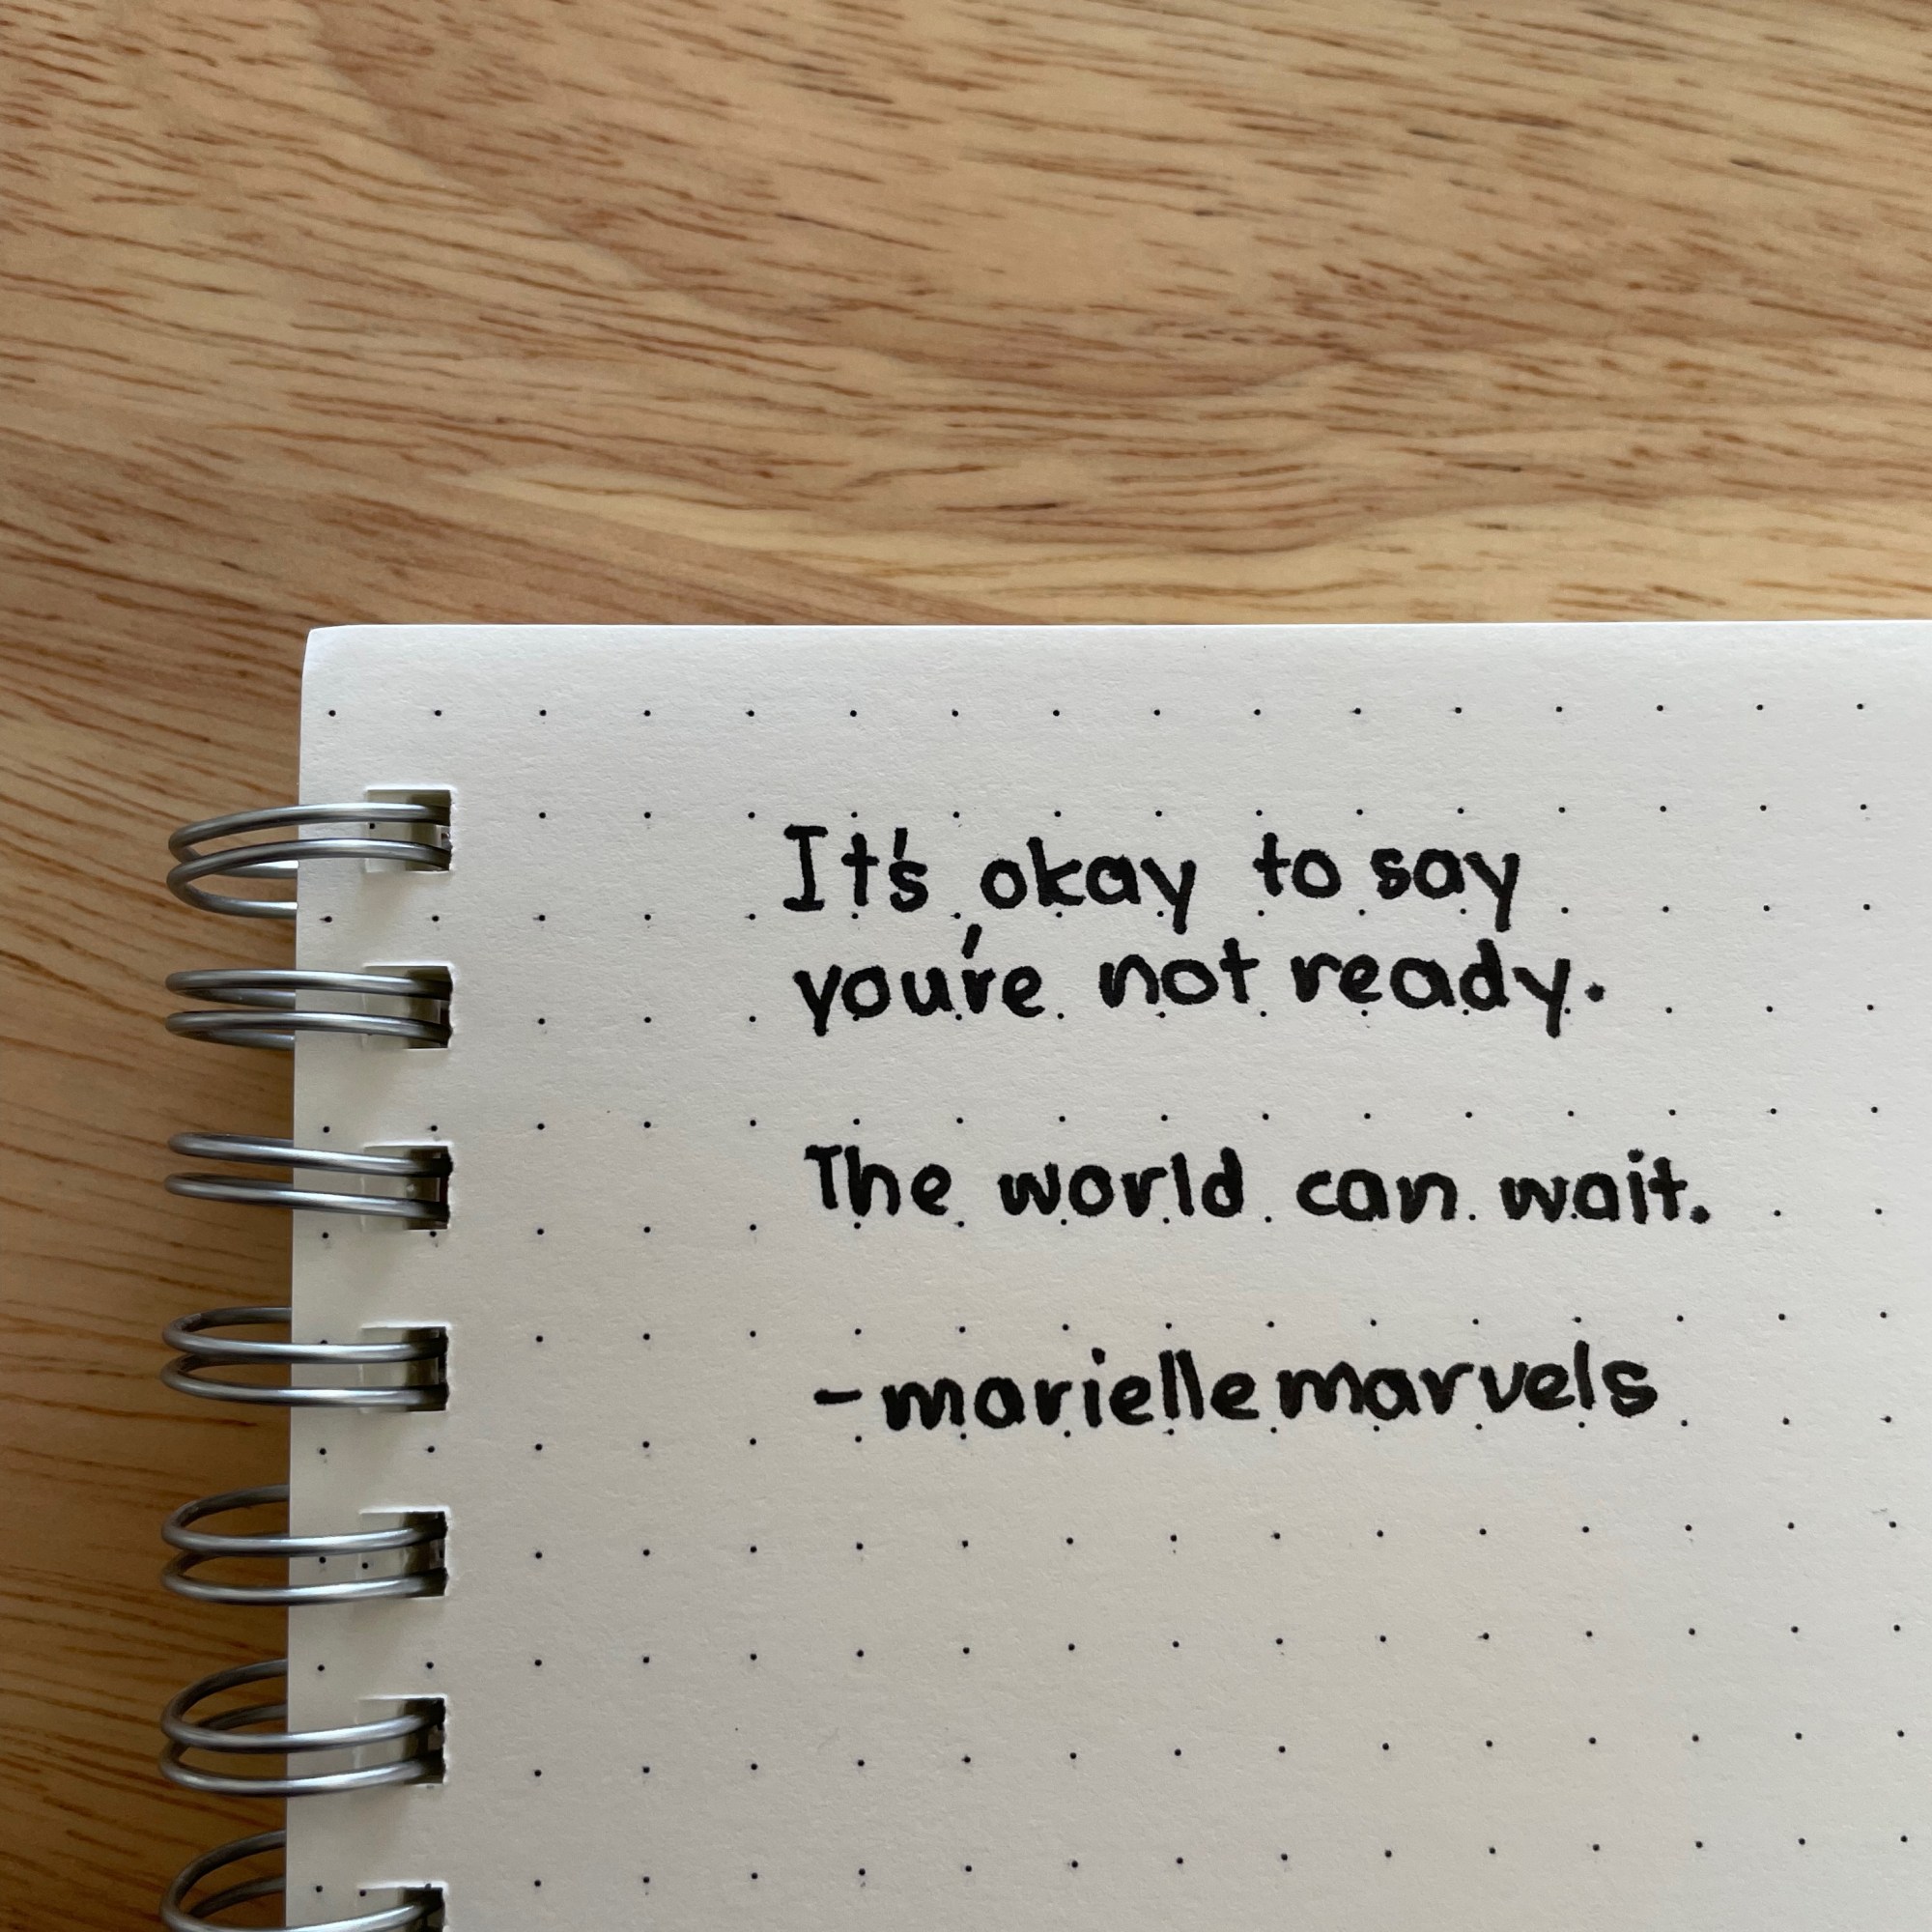 It's okay to say
you're not ready.
The world can wait.
- mariellemarvels